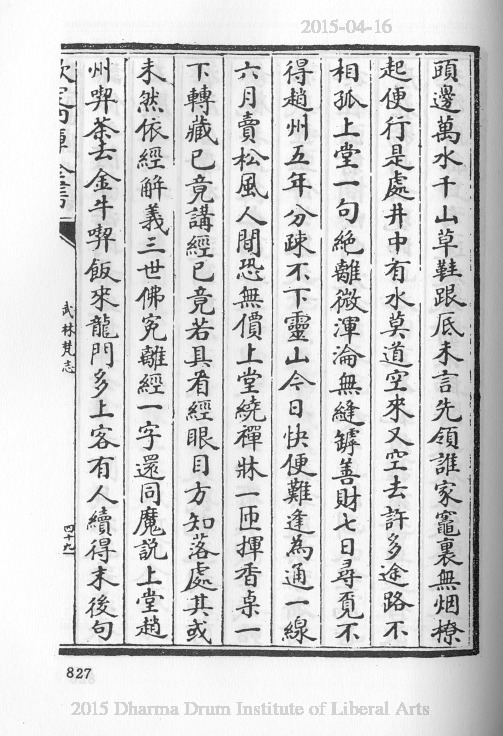 2015-04-16
頭邊萬水千山草鞋跟底未言先領誰家竈裏無烟撩
起便行是處井中有水莫道空來又空去許多途路不
相孤上堂一句絶離微渾淪無縫罅善財七日尋覓不
得趙州五年分疎不下靈山今日快便難逢為通一線
六月賣松風人間恐無價上堂繞禪牀一匝揮香桌一
下轉藏已竟講經已竟若具看經眼目方知落處其或
未然依經解義三世佛寃離經一字還同魔説上堂趙
州喫茶去金牛喫飯來龍門多上客有人續得末後句
欽定四庫全書
武林梵志
四十九
827
2015 Dharma Drum Institute of Liberal Arts